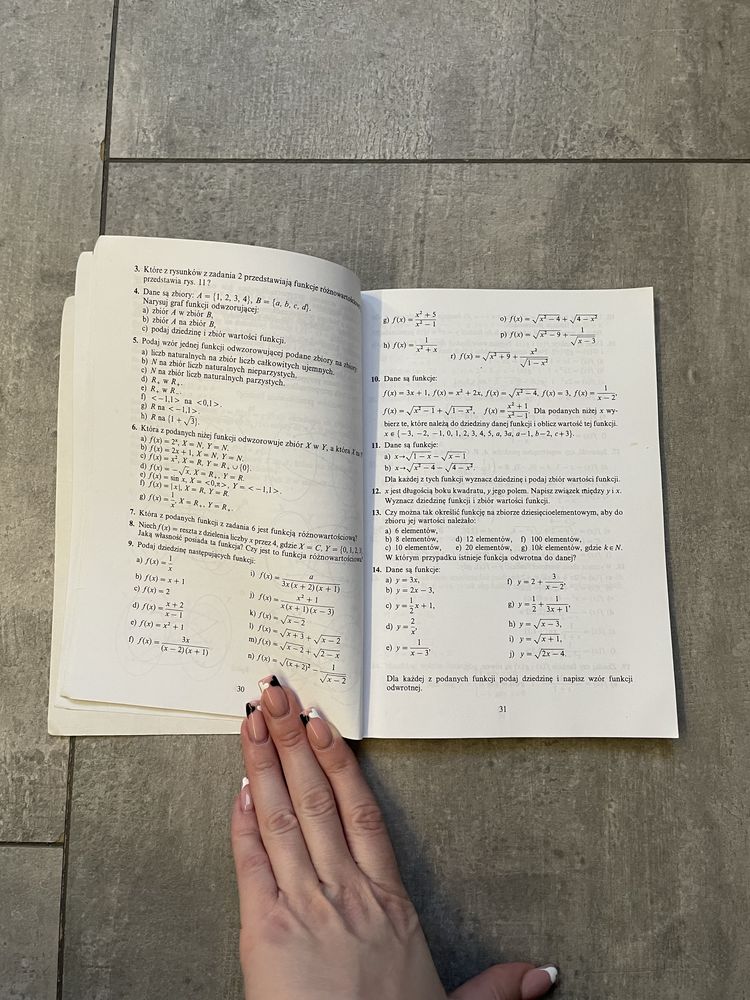 3. Które z rysunków z zadania 2 przedstawiają funkcje różnowartościowe,
przedstawia rys. 11?
4. Dane są zbiory: A = {1, 2, 3, 4}, B = {a, b, c, d}.
Narysuj graf funkcji odwzorowującej:
a) zbiór A w zbiór B,
b) zbiór A na zbiór B,
c) podaj dziedzinę i zbiór wartości funkcji.
5. Podaj wzór jednej funkcji odwzorowującej podane zbiory na zbiory
a) liczb naturalnych na zbiór liczb całkowitych ujemnych.
b) N na zbiór liczb naturalnych nieparzystych.
c) N na zbiór liczb naturalnych parzystych.
d) R₊ w R₊.
e) R₊ w R₋.
f) <−1,1> na <0,1>.
g) R na <−1,1>.
h) R na {1 + √3}.
6. Która z podanych niżej funkcji odwzorowuje zbiór X w Y, a która X na
a) f(x) = 2ˣ, X = N, Y = N.
b) f(x) = 2x + 1, X = N, Y = N.
c) f(x) = x², X = R, Y = R₊ ∪ {0}.
d) f(x) = −√x, X = R₊, Y = R.
e) f(x) = sin x, X = <0,π>, Y = <−1,1>.
f) f(x) = |x|, X = R, Y = R.
g) f(x) = 1/x, X = R₊, Y = R₊.
7. Która z podanych funkcji z zadania 6 jest funkcją różnowartościową?
8. Niech f(x) = reszta z dzielenia liczby x przez 4, gdzie X = C, Y = {0,1,2,3
Jaką własność posiada ta funkcja? Czy jest to funkcja różnowartościowa
9. Podaj dziedzinę następujących funkcji:
a) f(x) = 1/x
b) f(x) = x + 1
c) f(x) = 2
d) f(x) = (x + 2)/(x − 1)
e) f(x) = x² + 1
f) f(x) = 3x/((x − 2)(x + 1))
i) f(x) = a/(3x(x + 2)(x + 1))
j) f(x) = (x² + 1)/(x(x + 1)(x − 3))
k) f(x) = √(x − 2)
l) f(x) = √(x + 3) + √(x − 2)
m) f(x) = √(x − 2) + √(2 − x)
n) f(x) = √((x + 2)²) − 1/√(x − 2)
30
g) f(x) = (x² + 5)/(x² − 1)
h) f(x) = 1/(x² + x)
o) f(x) = √(x² − 4) + √(4 − x²)
p) f(x) = √(x² − 9) + 1/√(x − 3)
r) f(x) = √(x² + 9) + x²/√(1 − x²)
10. Dane są funkcje:
f(x) = 3x + 1, f(x) = x² + 2x, f(x) = √(x² − 4), f(x) = 3, f(x) = 1/(x − 2),
f(x) = √(x² − 1) + √(1 − x²), f(x) = (x² + 1)/(x² − 1). Dla podanych niżej x wy-
bierz te, które należą do dziedziny danej funkcji i oblicz wartość tej funkcji.
x ∈ {−3, −2, −1, 0, 1, 2, 3, 4, 5, a, 3a, a−1, b−2, c+3}.
11. Dane są funkcje:
a) x → √(1 − x) − √(x − 1)
b) x → √(x² − 4) − √(4 − x²).
Dla każdej z tych funkcji wyznacz dziedzinę i podaj zbiór wartości funkcji.
12. x jest długością boku kwadratu, y jego polem. Napisz związek między y i x.
Wyznacz dziedzinę funkcji i zbiór wartości funkcji.
13. Czy można tak określić funkcję na zbiorze dziesięcioelementowym, aby do
zbioru jej wartości należało:
a) 6 elementów,
b) 8 elementów, d) 12 elementów, f) 100 elementów,
c) 10 elementów, e) 20 elementów, g) 10k elementów, gdzie k ∈ N.
W którym przypadku istnieje funkcja odwrotna do danej?
14. Dane są funkcje:
a) y = 3x,
b) y = 2x − 3,
c) y = 1/2 x + 1,
d) y = 2/x,
e) y = 1/(x − 3),
f) y = 2 + 3/(x − 2),
g) y = 1/2 + 1/(3x + 1),
h) y = √(x − 3),
i) y = √(x + 1),
j) y = √(2x − 4).
Dla każdej z podanych funkcji podaj dziedzinę i napisz wzór funkcji
odwrotnej.
31